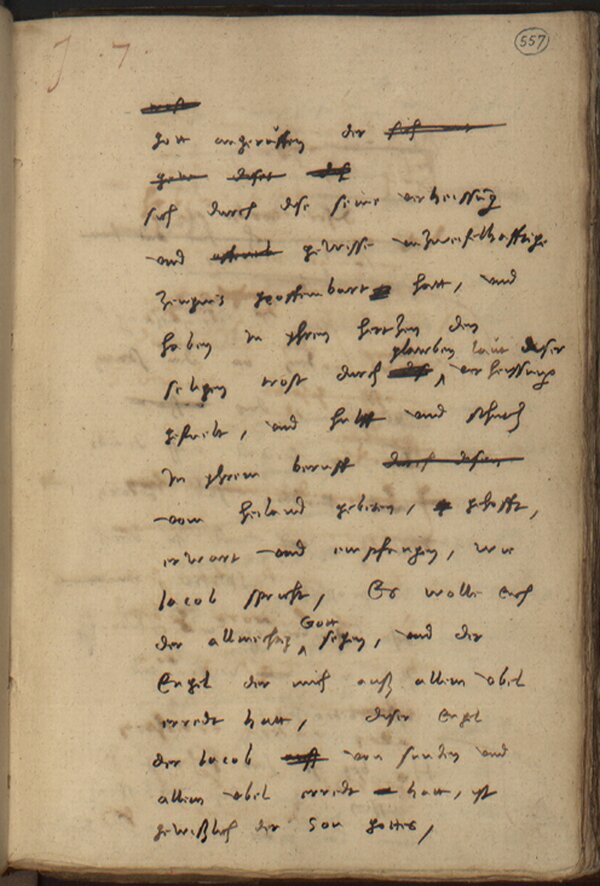 J. 7.
557
gott angeruffen der
sich durch dise seine verheissung
und gewisse unzweifelhafftige
zeugnis geoffenbart hatt, und
haben in yhren hertzen den
glauben laut diser
seligen trost durch verheyssung
gefuelt, und hulff und schutz
in yhrem beruff
vom heiland gebeten, gehofft,
erwart und empfangen, wie
Jacob spricht, Es wolle euch
Gott
der allmechtig segen, und der
Engel der mich auß allem vbel
erredt hatt, diser Engel
der Jacob von sunden und
allem vbel erredt hatt, ist
gewißlich der Son gottes,